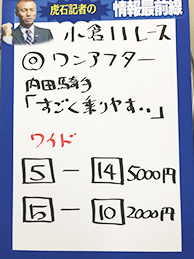 虎石記者の
情報最前線
小倉11レース
◎ワンアフター
内田騎手
「すごく乗りやす..」
ワイド
5 − 14 5000円
5 − 10 2000円